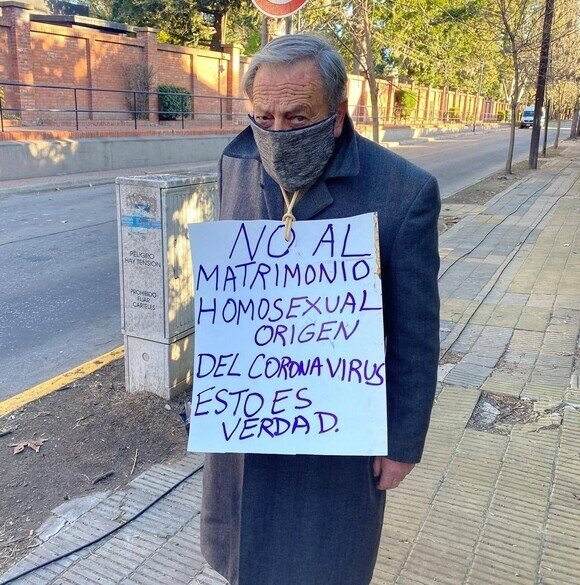 NO AL
MATRIMONIO
HOMOSEXUAL
ORIGEN
DEL CORONAVIRUS
ESTO ES
VERDAD.
PELIGRO
HAY TENSION
PROHIBIDO
FIJAR
CARTELES